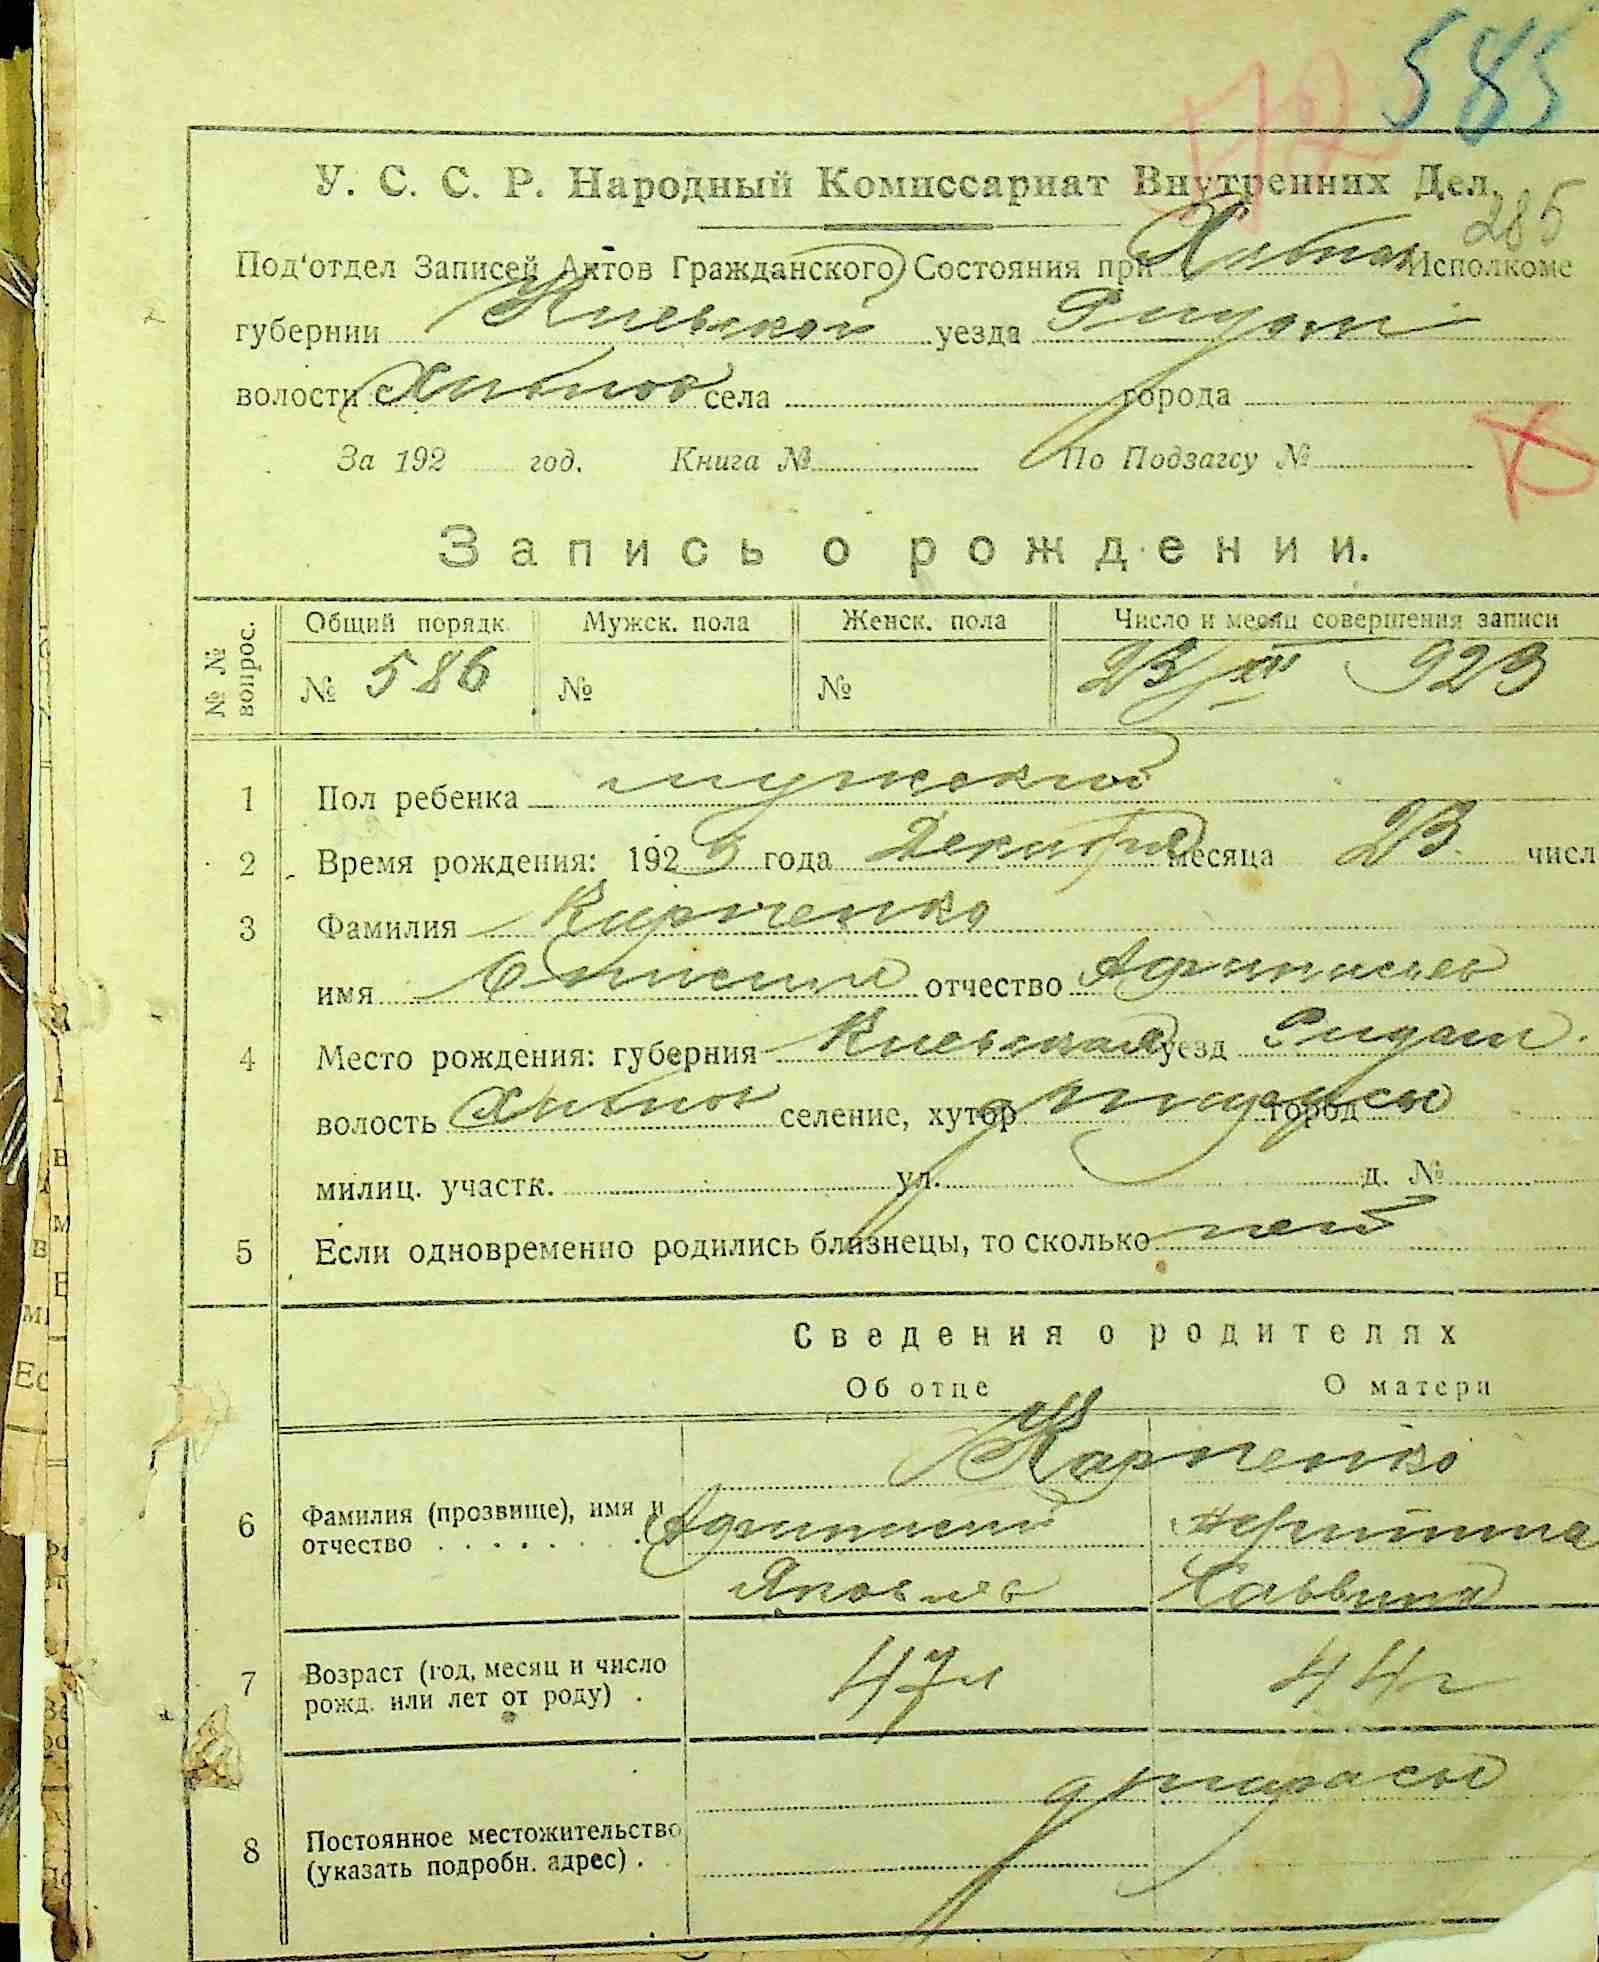 585
72
У. С. С. Р. Народный Комиссариат Внутренних Дел.
285
Под'отдел Записей Актов Гражданского Состояния при Хабнов Исполкоме
губернии Киевской уезда
волости Хабнов села города
За 192 год. Книга № По Подзагсу №
Запись о рождении.
№ № вопрос. Общий порядк. Мужск. пола Женск. пола Число и месяц совершения записи
№ 586 № № 23/XII 923
1 Пол ребенка мужской
2 Время рождения: 1923 года Декабря месяца 23 числ
3 Фамилия Карпенко
имя отчество
4 Место рождения: губерния Киевская уезд
волость Хабнов селение, хутор город
милиц. участк. ул. д. №
5 Если одновременно родились близнецы, то сколько нет
Сведения о родителях
Об отце О матери
Карпенко
6 Фамилия (прозвище), имя и
отчество
Яковлев
7 Возраст (год, месяц и число
рожд. или лет от роду) . 47 л 44 г
8 Постоянное местожительство
(указать подробн. адрес) .